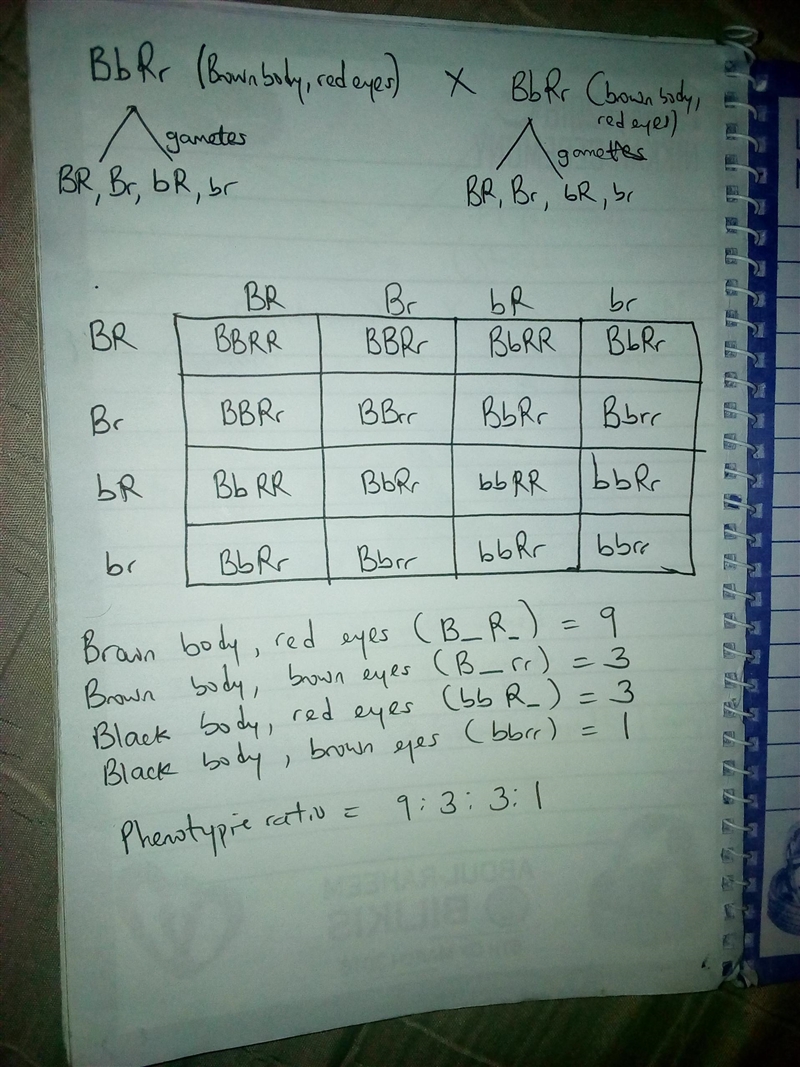 BbRr (Brown body, red eyes) X BbRr (brown body,
red eyes)
gametes gametes
BR, Br, bR, br BR, Br, bR, br
BR Br bR br
BR BBRR BBRr BbRR BbRr
Br BBRr BBrr BbRr Bbrr
bR BbRR BbRr bbRR bbRr
br BbRr Bbrr bbRr bbrr
Brown body, red eyes (B_R_) = 9
Brown body, brown eyes (B_rr) = 3
Black body, red eyes (bb R_) = 3
Black body, brown eyes (bbrr) = 1
Phenotypic ratio = 9 : 3 : 3 : 1
ABDULRAHEEM
BILIKIS